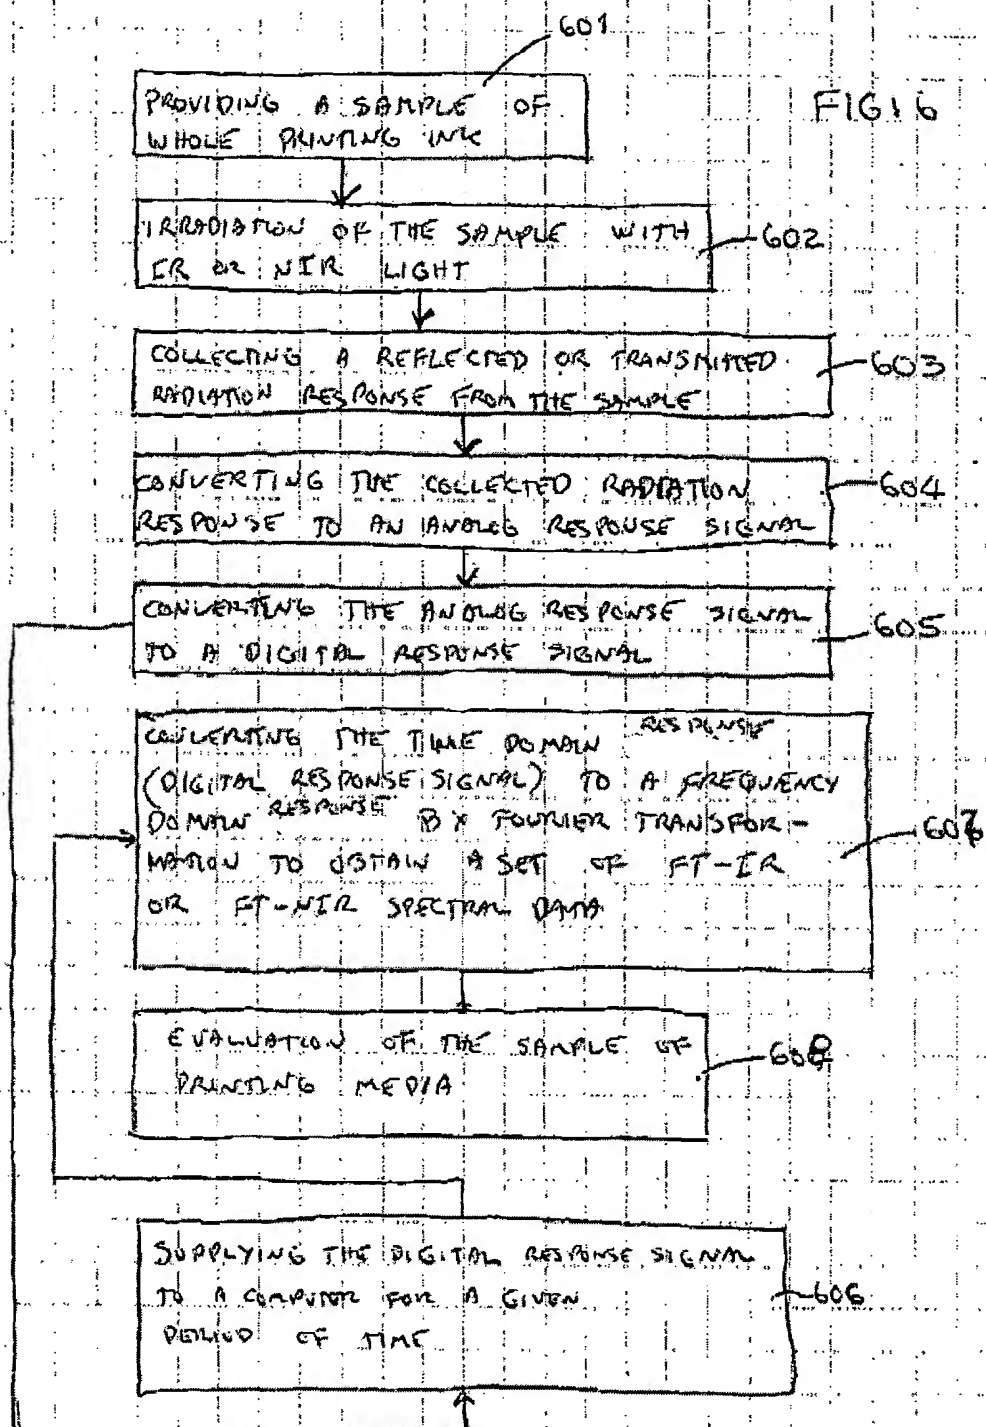 601
FIG. 6
PROVIDING A SAMPLE OF
WHOLE PRINTING INK
IRRADIATION OF THE SAMPLE WITH
IR OR NIR LIGHT
602
COLLECTING A REFLECTED OR TRANSMITTED
RADIATION RESPONSE FROM THE SAMPLE
603
CONVERTING THE COLLECTED RADIATION
RESPONSE TO AN ANALOG RESPONSE SIGNAL
604
CONVERTING THE ANALOG RESPONSE SIGNAL
TO A DIGITAL RESPONSE SIGNAL
605
CONVERTING THE TIME DOMAIN RESPONSE
(DIGITAL RESPONSE SIGNAL) TO A FREQUENCY
DOMAIN RESPONSE BY FOURIER TRANSFOR-
MATION TO OBTAIN A SET OF FT-IR
OR FT-NIR SPECTRAL DATA
607
EVALUATION OF THE SAMPLE OF
PRINTING MEDIA
608
SUPPLYING THE DIGITAL RESPONSE SIGNAL
TO A COMPUTER FOR A GIVEN
PERIOD OF TIME
606